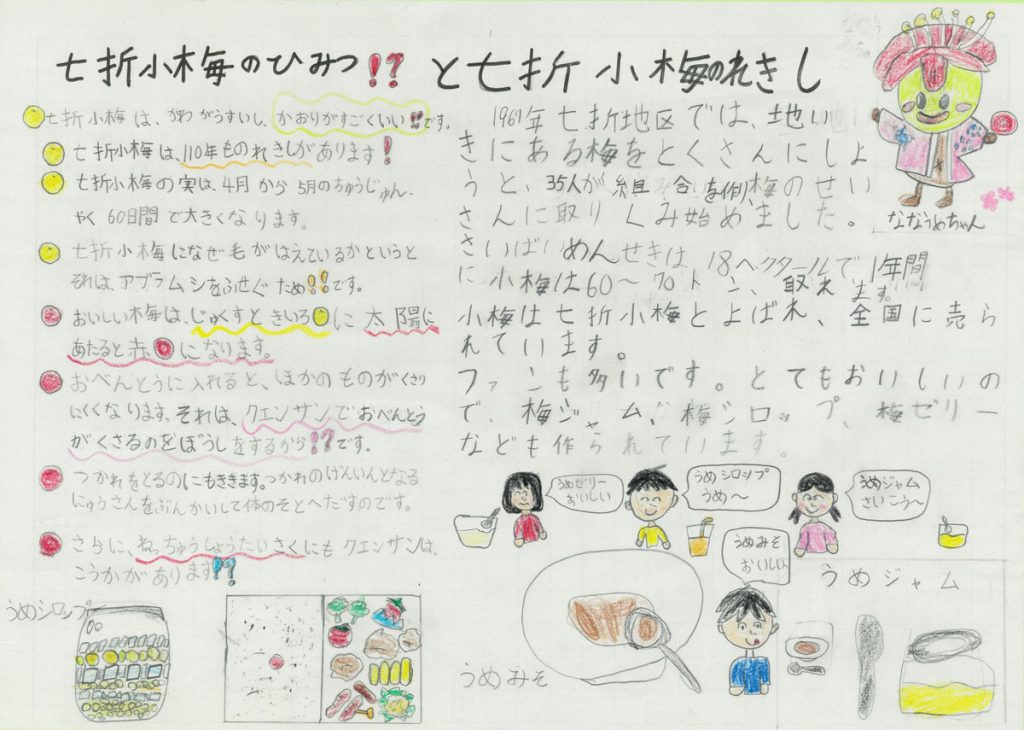 七折小梅のひみつ!?と七折小梅のれきし
七折小梅は、かわがうすいし、かおりがすごくいい!!です。
七折小梅は、110年ものれきしがあります!
七折小梅の実は、4月から5月のちゅうじゅん、
やく60日間で大きくなります。
七折小梅になぜ毛がはえているかというと
それは、アブラムシをふせぐため!!です。
おいしい梅は、じゅくすときいろに太陽に
あたると赤になります。
おべんとうに入れると、ほかのものがくさり
にくくなります。それは、クエンサンでおべんとう
がくさるのをぼうしをするから!?です。
つかれをとるのにもききます。つかれのげんいんとなる
にゅうさんをぶんかいして体のそとへだすのです。
さらに、ねっちゅうしょうたいさくにもクエンサンは、
こうかがあります!?
1967年七折地区では、地い
きにある梅をとくさんにしよ
うと、35人が組合を作り、梅のせい
さんに取りくみ始めました。
さいばいめんせきは、18ヘクタールで、1年間
に小梅は60〜70トン、取れます。
小梅は七折小梅とよばれ、全国に売ら
れています。
ファンも多いです。とてもおいしいの
で、梅ジャム、梅シロップ、梅ゼリー
なども作られています。
ななうめちゃん
うめゼリー
おいしい
うめシロップ
うめ〜
うめジャム
さいこう〜
うめみそ
おいしい
うめシロップ
うめみそ
うめジャム